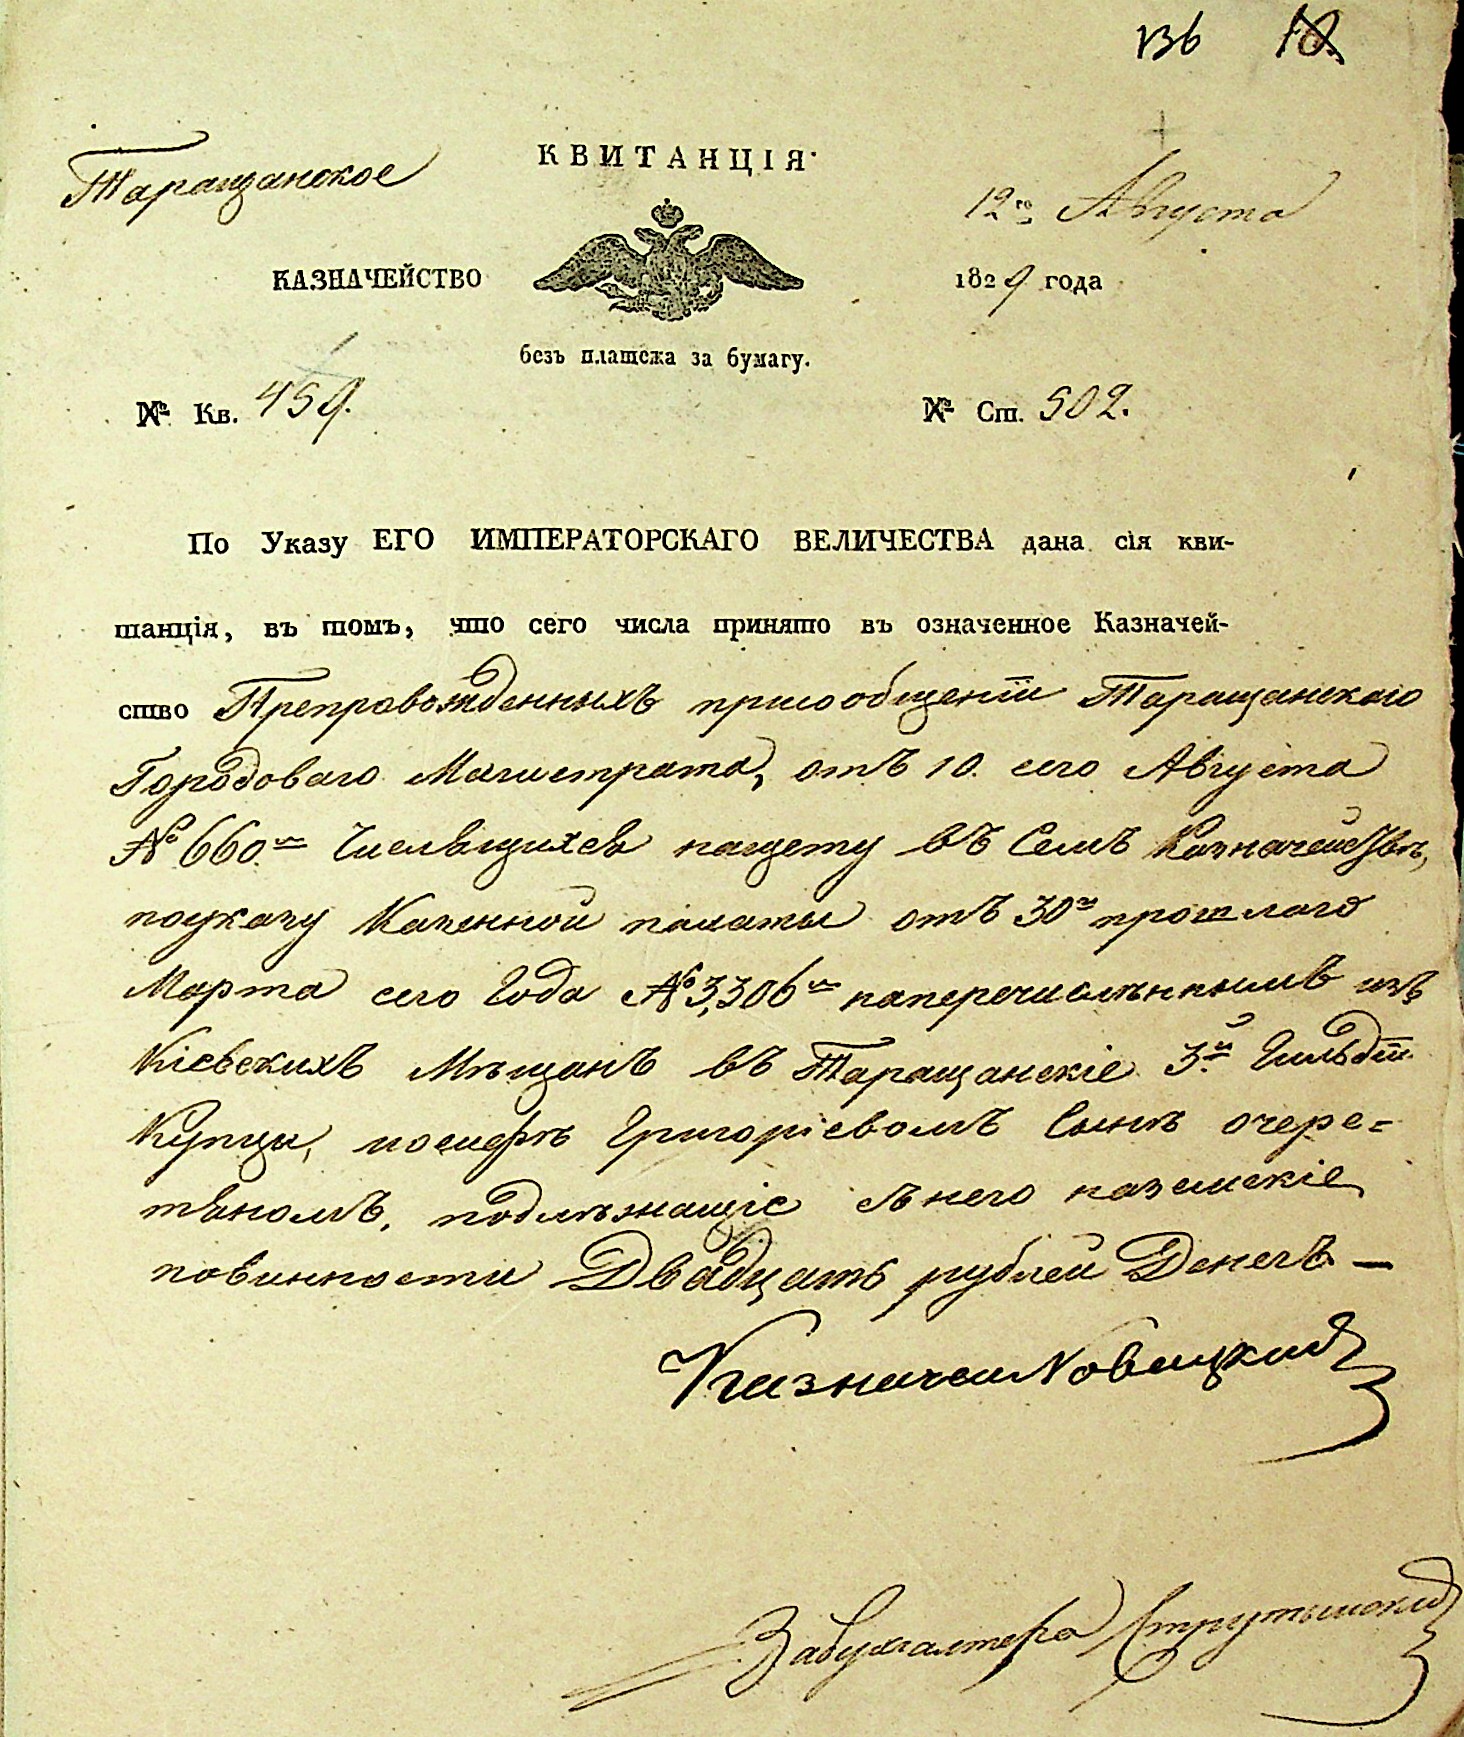 136 18.
КВИТАНЦІЯ
Таращанское
12го Августа
КАЗНАЧЕЙСТВО
1829 года
безъ платежа за бумагу.
№ Кв. 459.
№ Ст. 502.
По Указу ЕГО ИМПЕРАТОРСКАГО ВЕЛИЧЕСТВА дана сія кви-
танція, въ томъ, что сего числа принято въ означенное Казначей-
ство Препровожденныхъ присообщеніи Таращанскаго
Городоваго Магистрата, отъ 10. сего Августа
№ 660.м Числящихся нащету въ Семъ Казначействѣ,
поуказу Казенной палаты отъ 30го прошлаго
Марта сего Года № 3,306м наперечисленнымъ изъ
Кіевскихъ Мѣщанъ въ Таращанскіе 3й Гильдіи
Купцы, иосифѣ Григоріевомъ Сынѣ очере=
тяномъ, подлежащіе съ него наземскіе
повинности Двадцать рублей Денегъ —
Казначей Новицкий
За бухгалтера Струтинский